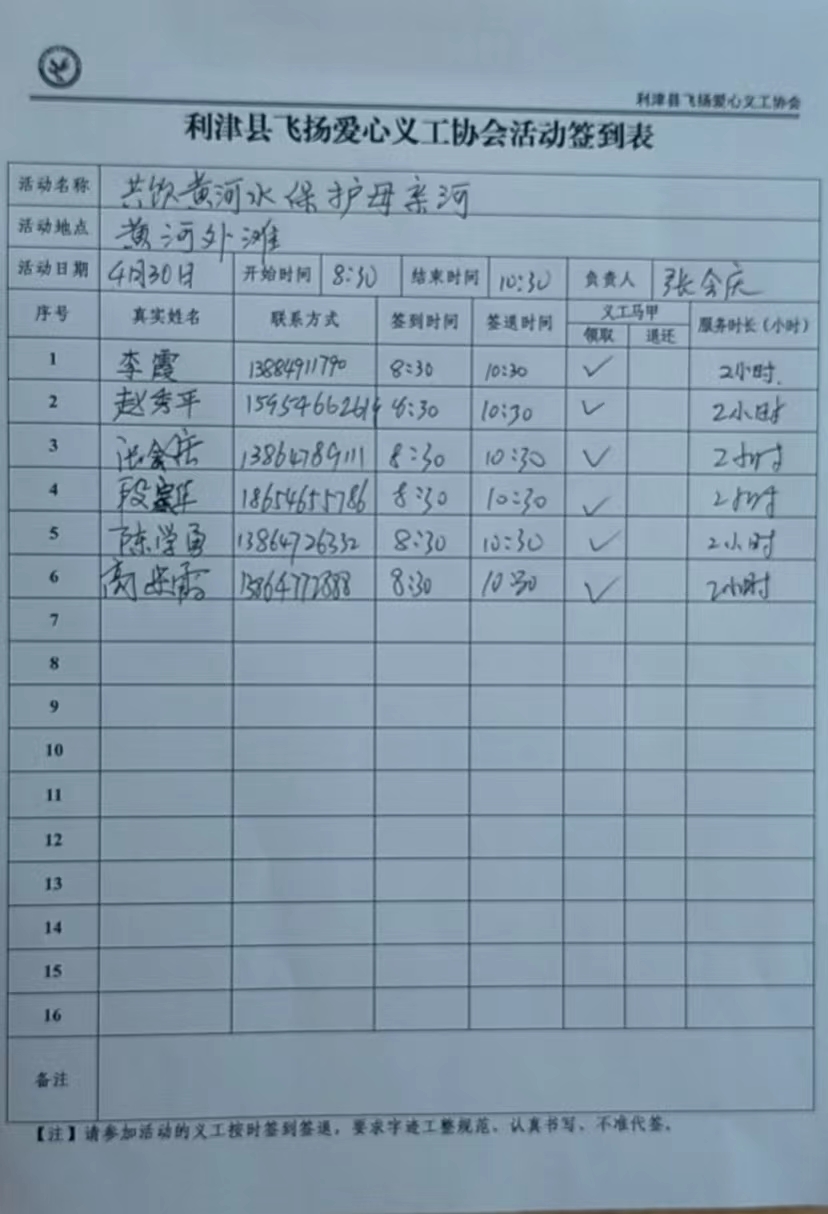 利津县飞扬爱心义工协会
利津县飞扬爱心义工协会活动签到表
活动名称 共饮黄河水保护母亲河
活动地点 黄河外滩
活动日期 4月30日 开始时间 8:30 结束时间 10:30 负责人 张会庆
序号 真实姓名 联系方式 签到时间 签退时间 义工马甲 服务时长(小时)
领取 退还
1 李霞 13884911790 8:30 10:30 ✓ 2小时.
2 赵秀平 15954662619 8:30 10:30 ✓ 2小时
3 张会庆 13864789111 8:30 10:30 ✓ 2小时
4 段 18654655786 8:30 10:30 ✓ 2小时
5 陈学勇 13864726332 8:30 10:30 ✓ 2小时
6 高 13864772888 8:30 10:30 ✓ 2小时
7
8
9
10
11
12
13
14
15
16
备注
【注】请参加活动的义工按时签到签退，要求字迹工整规范、认真书写、不准代签。